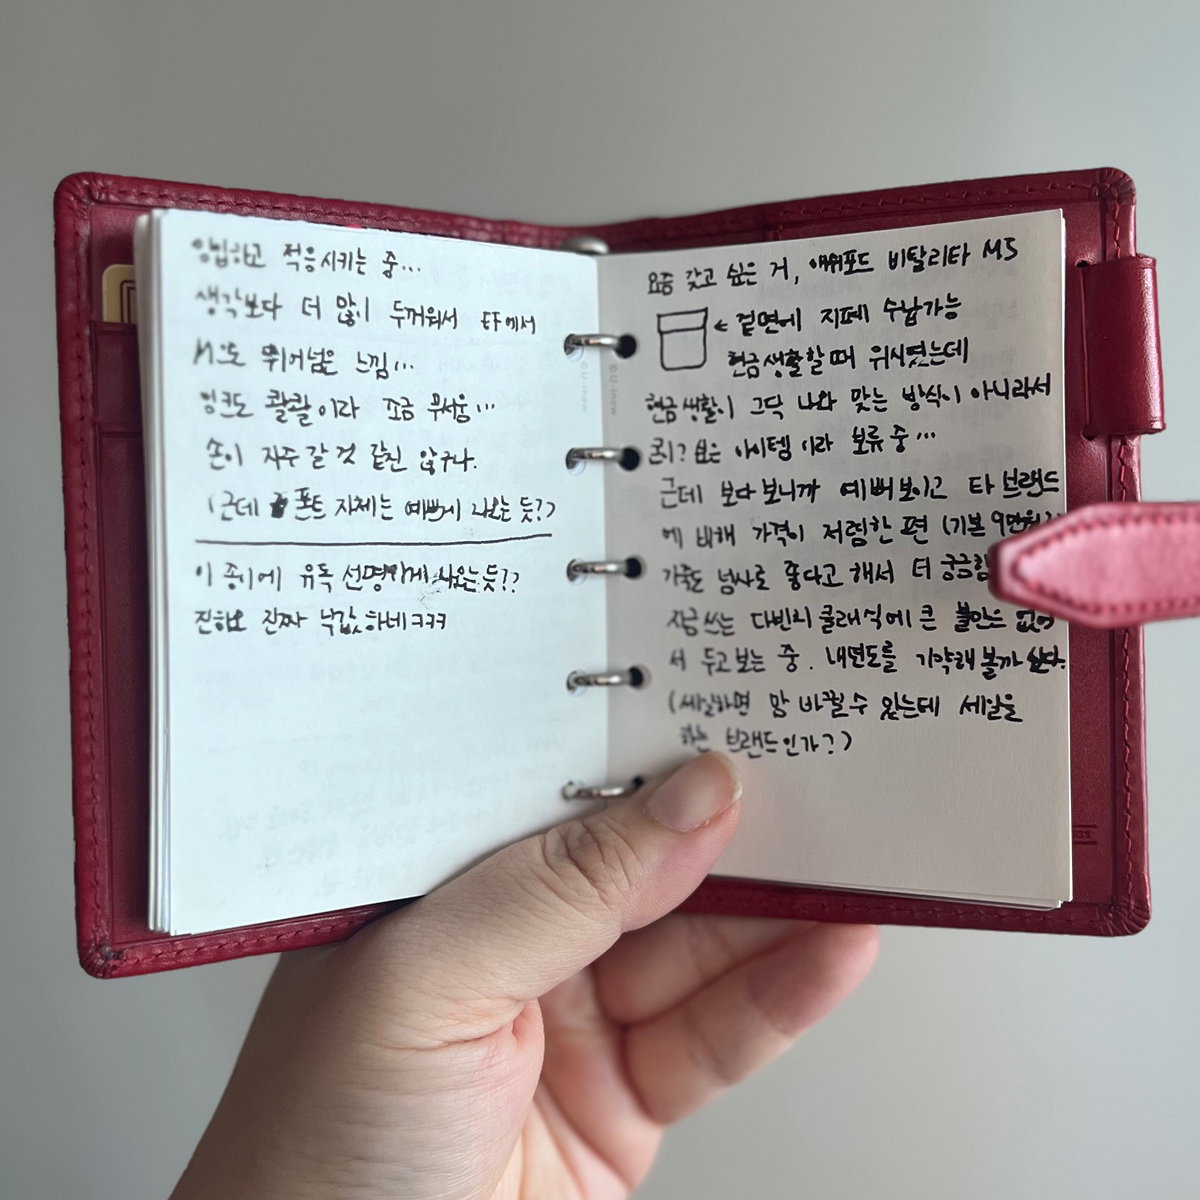 적응시키는 중...
생각보다 더 많이 두꺼워서 EF에서
M으로 뛰어넘은 느낌...
잉크도 콸콸이라 조금 무서움...
손이 자주 갈 것 같진 않구나.
(근데 폰트 자체는 예쁘게 나오는 듯?)
이 종이에 유독 선명하게 나오는듯??
진하요 진짜 값하네ㅋㅋㅋ
요즘 갖고 싶은 거, 애쉬포드 비탈리타 M5
← 겉면에 지폐 수납가능
현금생활할때 쓰시렸는데
현금생활이 그닥 나와 맞는 방식이 아니라서
굳이? 싶은 아이템이라 보류중...
근데 보다보니까 예뻐보이고 타 브랜드
에 비해 가격이 저렴한 편 (기본 9만원
가죽도 넘사로 좋다고 해서 더 궁금함
지금 쓰는 다빈치 클래식에 큰 불만은 없어
서 두고보는 중. 내년도를 기약해볼까 싶다.
(세일하면 맘 바뀔수 있는데 세일을
하는 브랜드인가?)